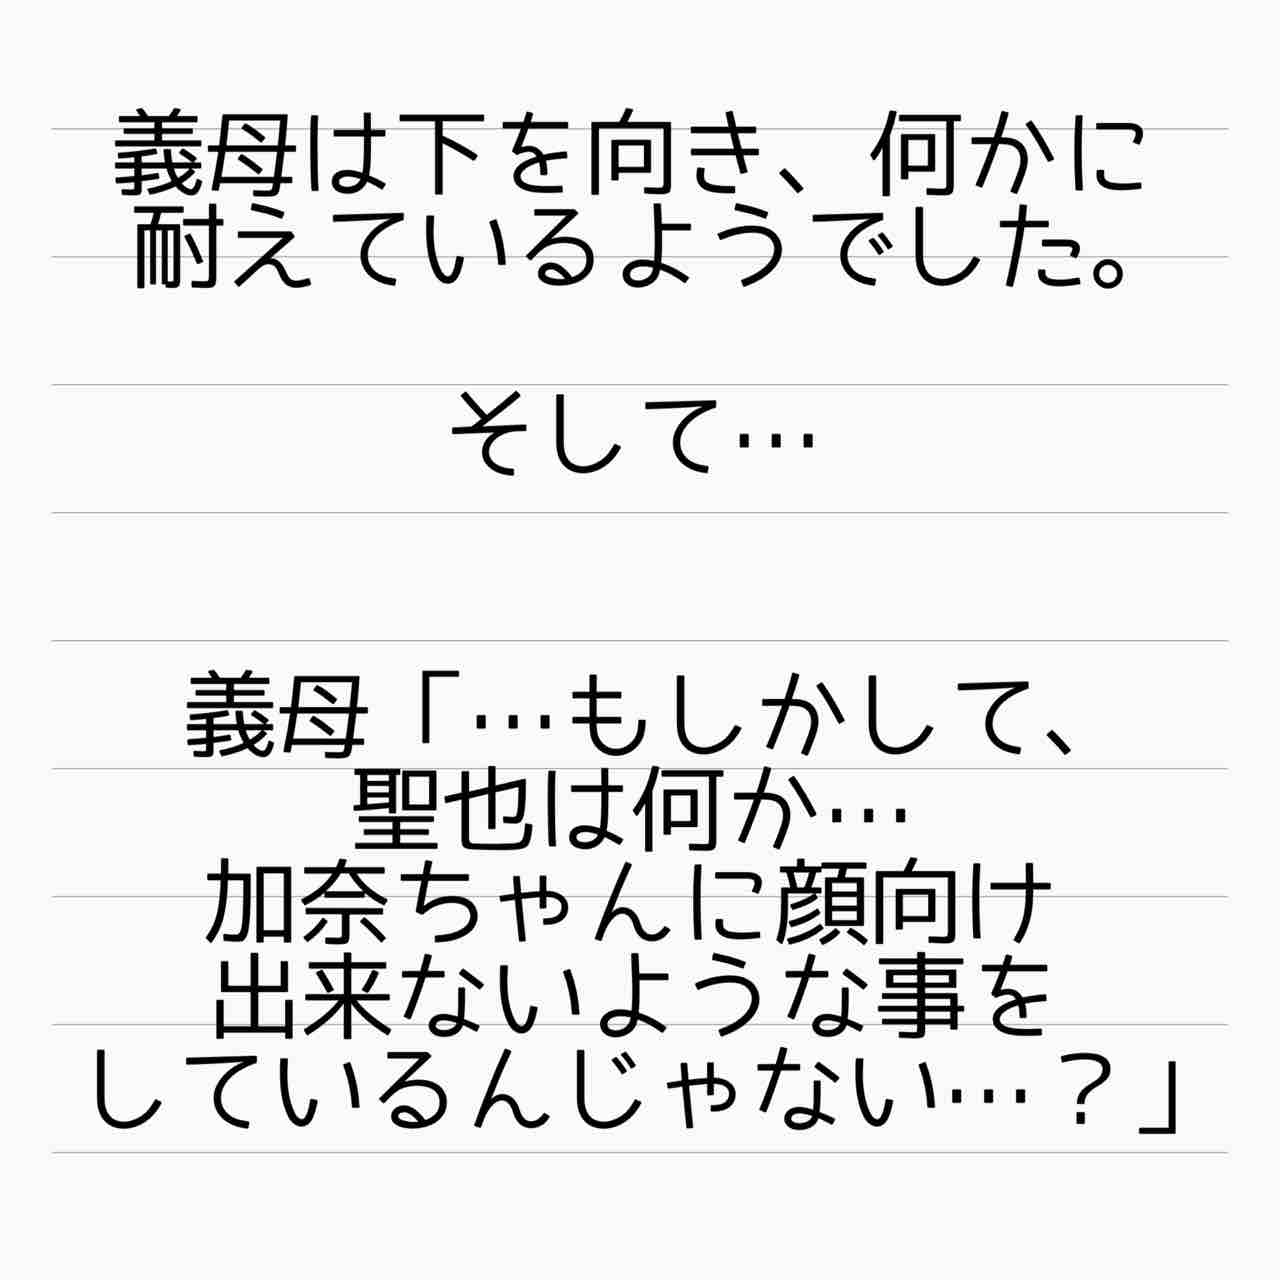 義母は下を向き、何かに
耐えているようでした。
そして…
義母「…もしかして、
聖也は何か…
加奈ちゃんに顔向け
出来ないような事を
しているんじゃない…？」